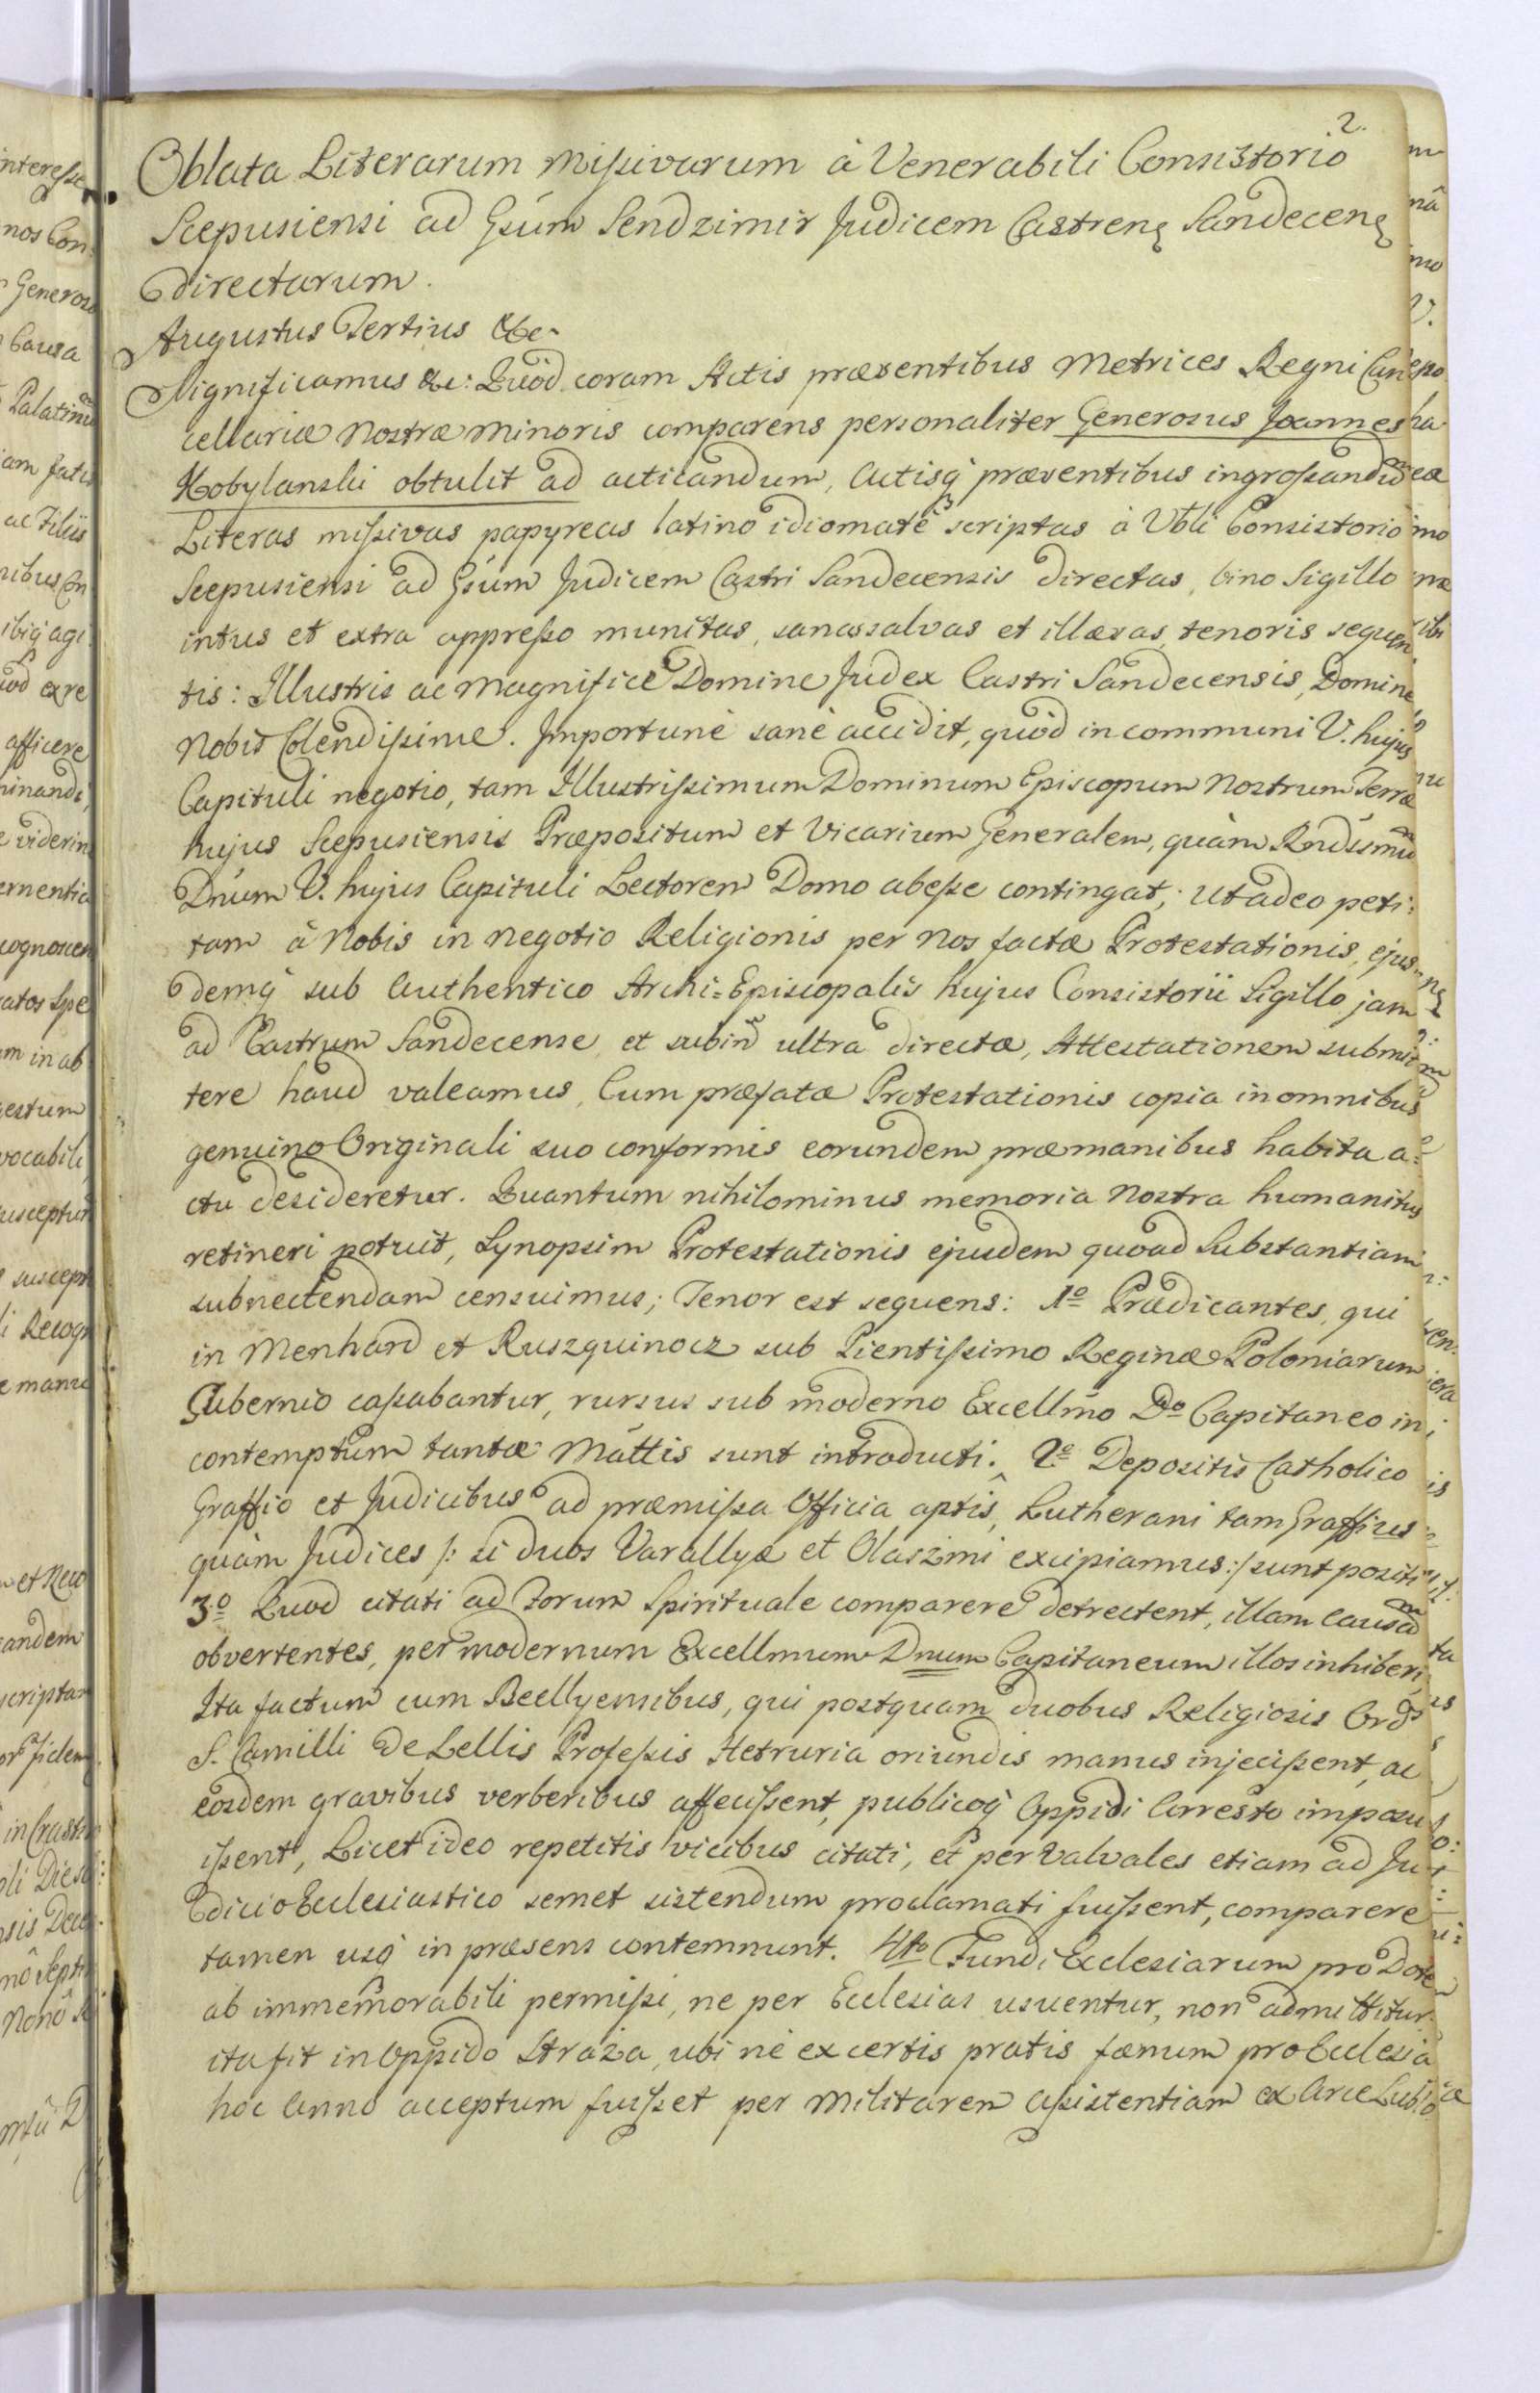 2.
Oblata Literarum Missivarum à Venerabili Consistorio
Scepusiensi ad Gsum Sendzimir Judicem Castrens Sandecens
directarum.
Augustus Tertius &c.
Significamus &c: Quod coram Actis præsentibus Metrices Regni Can
cellariæ Nostræ Minoris comparens personaliter Generosus Joannes
Kobylanski obtulit ad acticandum, Actisq præsentibus ingrossandũ
Literas missivas papyreas latinô idiomatè scriptas à Vbli Consistorio
Scepusiensi ad Gsum Judicem Castri Sandecensis directas, bino Sigillo
intus et extra appresso munitas, sanas salvas et illæsas, tenoris sequen
tis: Illustris ac Magnifice Domine Judex Castri Sandecensis, Domine
Nobis Colendissime. Importunè sanè accidit, quòd in communi V. hujus
Capituli negotio, tam Illustrissimum Dominum Episcopum Nostrum Terræ
hujus Scepusiensis Præpositum et Vicarium Generalem, quàm Rndssmũ
Dnum V. hujus Capituli Lectorem Domo abesse contingat; Ut adeo peti:
tam à Nobis in negotio Religionis per Nos factæ Protestationis, ejus
demq sub Authentico Archi=Episcopalis hujus Consistorii Sigillo jam
ad Castrum Sandecense, et subin ultra directæ, Attestationem submit
tere haud valeamus, Cum præfatæ Protestationis copia in omnibus
genuino Originali suo conformis eorundem præ manibus habita a=
ctu desideretur. Quantum nihilominus memoria Nostra humanitus
retineri potuit, Synopsim Protestationis ejusdem quoad Substantiam
subnectendam censuimus; Tenor est sequens: 1o Prædicantes, qui
in Menhard et Ruszquinocz sub Pientissimo Reginæ Poloniarum
Gubernio cassabantur, rursus sub moderno Excellmo Do Capitaneo in
contemptum tantæ Mattis sunt introducti. 2o Depositis Catholico
Graffio et Judicibus ad præmissa Officia aptis, Lutherani tam Graffius
quàm Judices /: si duos Varallyæ et Olaszini excipiamus :/ sunt positi
3o Quod citati ad Forum Spirituale comparere detrectent, illam Causam
obvertentes, per modernum Excellmum Dnum Capitaneum illos inhiberi,
Ita factum cum Beellyensibus, qui postquam duobus Religiosis Ords
S. Camilli De Lellis Professis Hetruria oriundis manus injecissent, ac
eosdem gravibus verberibus affecissent, publicoq Oppidi Arresto imposu
issent, Licet ideo repetitis vicibus citati, et per Valvales etiam ad Ju
dicio Ecclesiastico semet sistendum proclamati fuissent, comparere
tamen usq in præsens contemnunt. 4to Fundi Ecclesiarum pro Dote
ab immemorabili permissi, ne per Ecclesias usuentur, non admittitur.
ita fit in Oppido Straża, ubi nè ex certis pratis fænum pro Ecclesia
hoc Anno acceptum fuisset per Militarem Assistentiam ex Arce Lublo